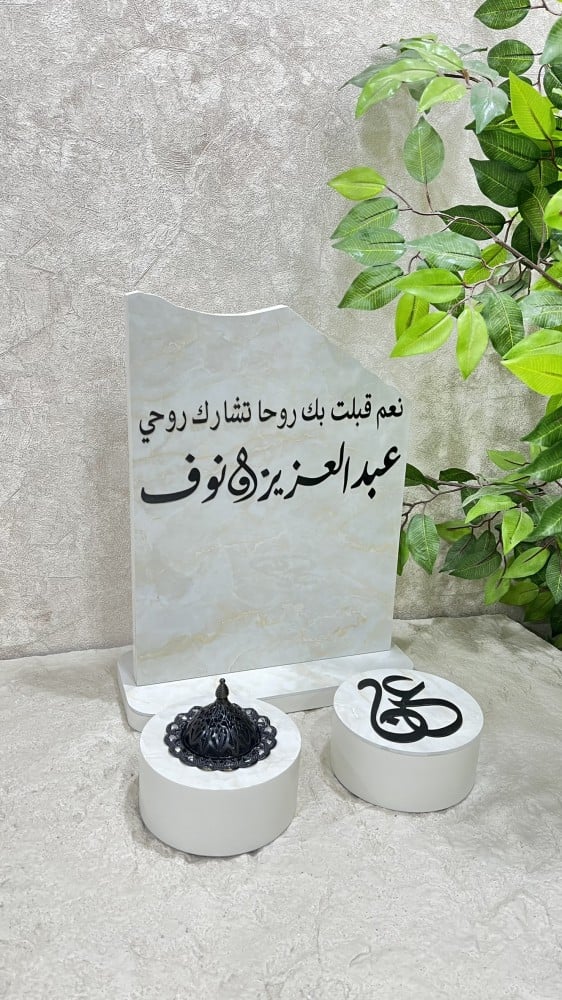 نعم قبلت بك روحا تشارك روحي
عبدالعزيز & نوف